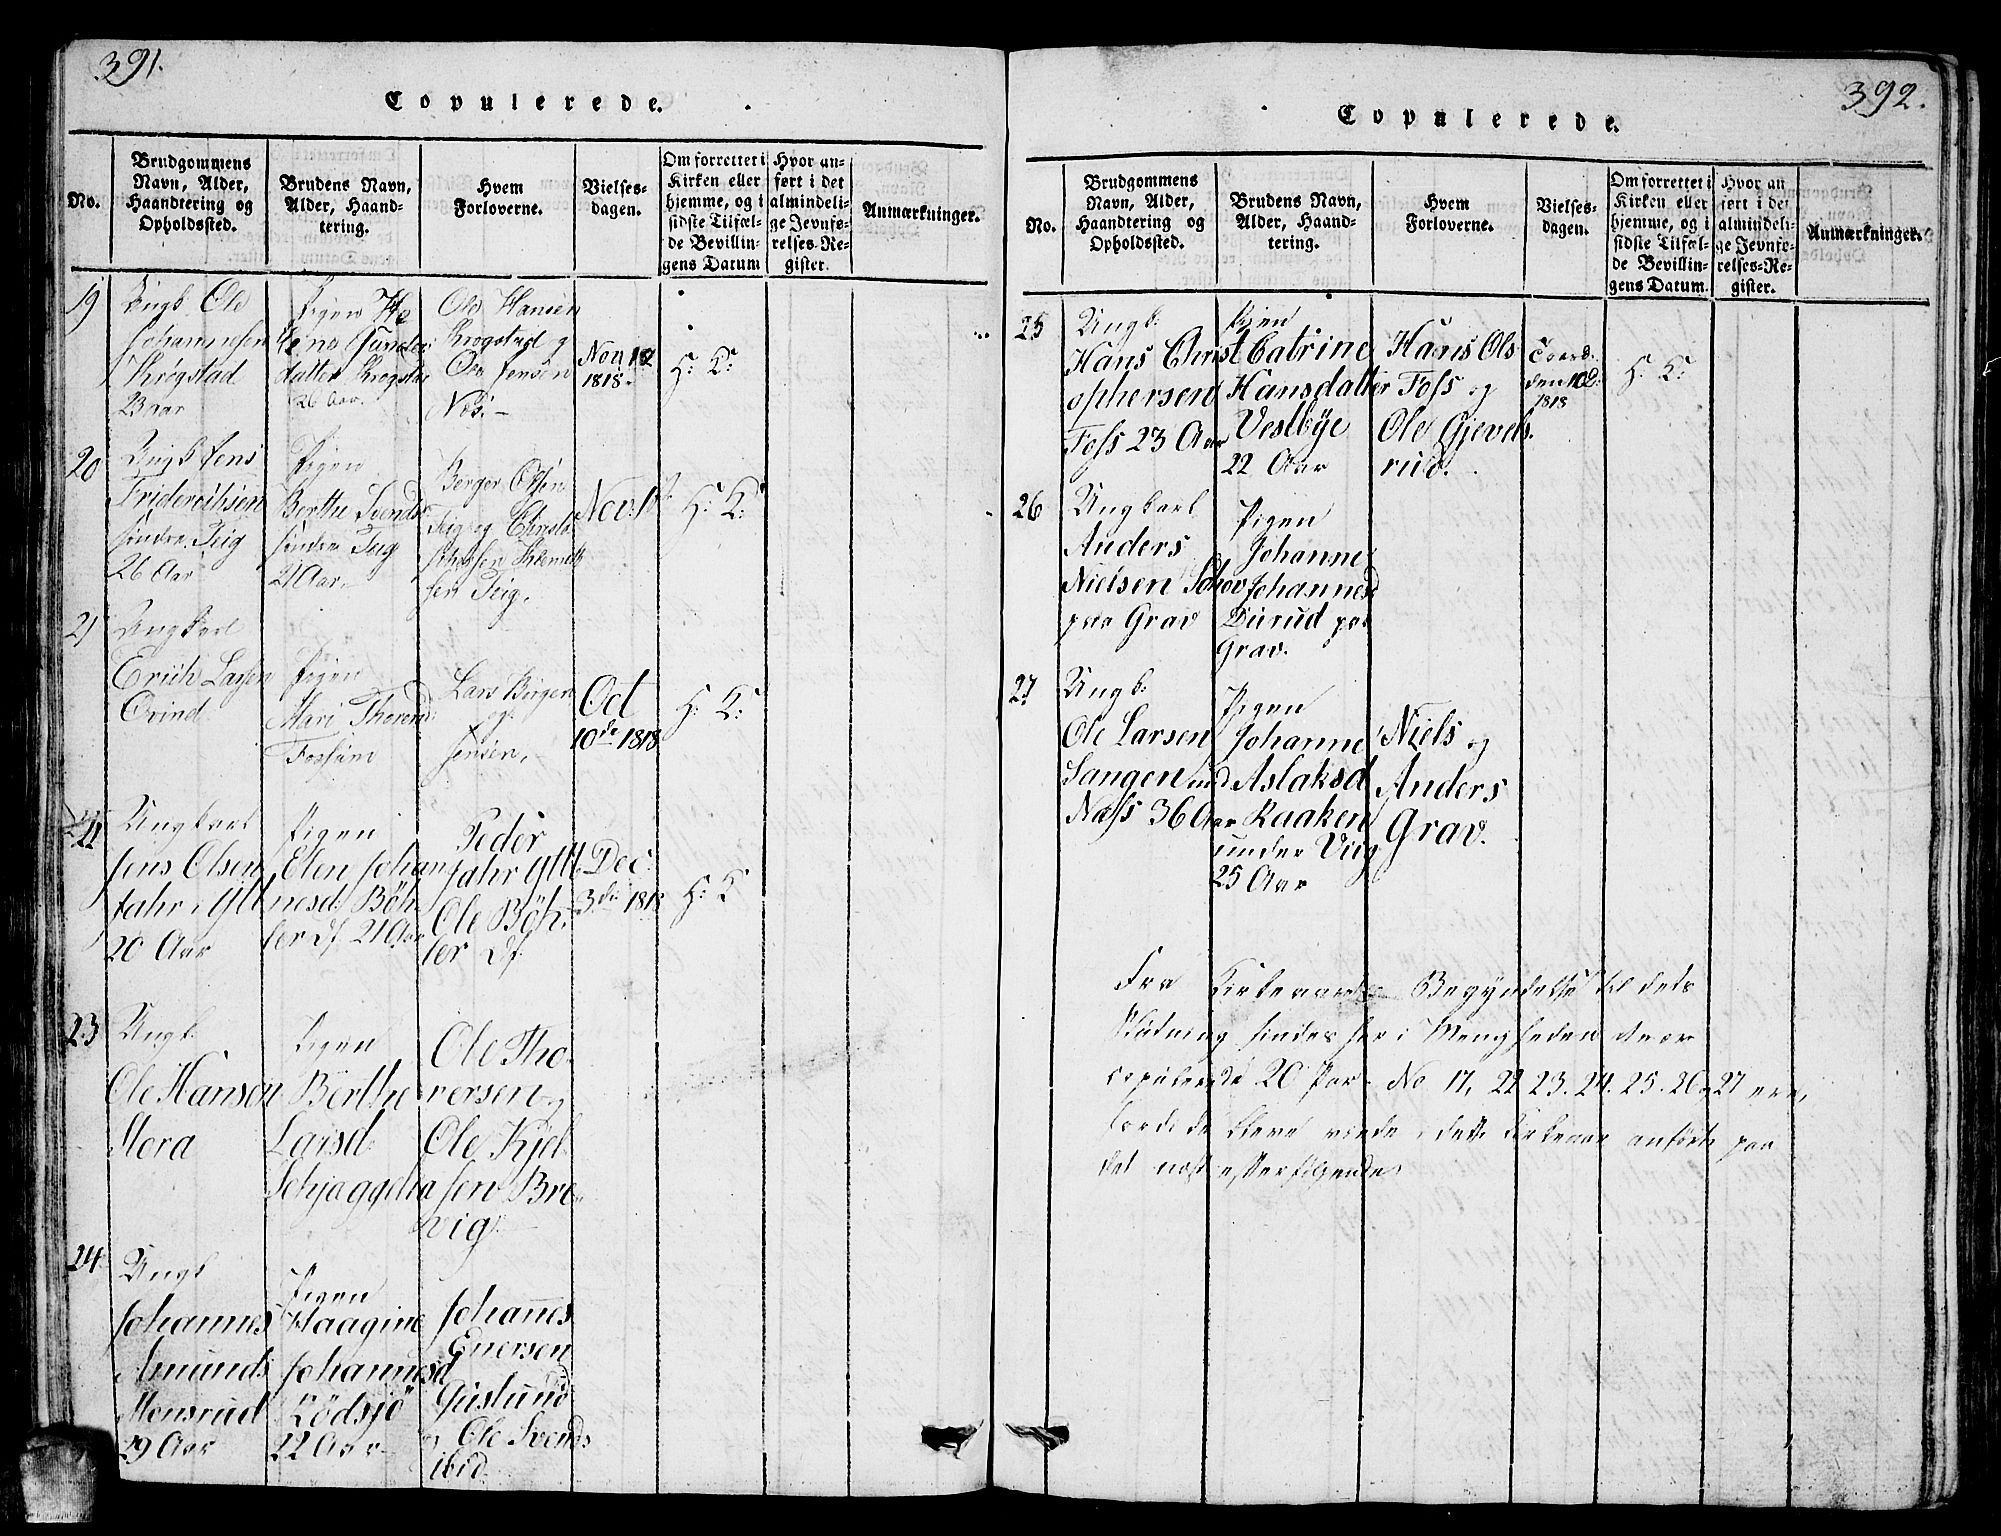 391.
Copulerede.
No.
Brudgommens
Navn, Alder,
Haandtering og
Opholdssted.
Brudens Navn,
Alder, Haand-
tering.
Hvem
Forloverne.
Vielses-
dagen.
Om forrettet i
Kirken eller
hjemme, og i
sidste Tilfæl-
de Bevillin-
gens Datum
Hvor an-
ført i det
almindeli-
ge Jevnfø-
relses-Re-
gister.
Anmærkninger.
19
Ungk. Ole
Johannesen
Krogstad
Pigen He
lene Gunders
datter Krogstad
26 Aar.
Ole Hansen
Krogstad og
Ole Jensen
Næs.
Nov 12
1818.
H: K:
20
Ungk Jens
Friderichsen
søndre Teig
26 Aar
Pigen
Berthe Svends
søndre Teig
21 Aar.
Berger Olsen
Teig og Christo
sen Teig.
Nov. 1st
H: K:
21
Ungkarl
Erich Larsen
Ovind
Pigen
Mari Thorend
Fossum
Lars Birger
og
Jensen.
Oct
10de 1818
H: K:
22
Ungkarl
Jens Olsen
Fahr i Yllt
20 Aar
Pigen
Elen Johan
nesd: Böh
ler df 21 Aar
Peder
Fahr Yllt
Ole Böh
ler df
Dec:
3die 1818
H: K
23
Ungk.
Ole Hansen
Mora
Pigen
Berthe
Larsd:
Schjaggestra
Ole Tho-
versen og
Ole Kjel
sen Bre
vig
24
Ungk
Johannes
Amunds
Monsrud
29 Aar
Pigen
Haagine
Johannesd
Rödsjö
22 Aar
Johannes
Enersen
Guslund
og Ole Svends
ibid
392.
Copulerede.
No.
Brudgommens
Navn, Alder,
Haandtering og
Opholdssted.
Brudens Navn,
Alder, Haand-
tering.
Hvem
Forloverne.
Vielses-
dagen.
Om forrettet i
Kirken eller
hjemme, og i
sidste Tilfæl-
de Bevillin-
gens Datum.
Hvor an
ført i det
almindeli-
ge Jevnfø-
relses-Re-
gister.
Anmærkninger.
25
Ungk:
Hans Christ
ophersen
Foss 23 Aar
Pigen
Catrine
Hansdatter
Vestbye
22 Aar
Hans Ols
Foss og
Ole Gjevels
rud.
den 10 D:
1818
H: K:
26
Ungkarl
Anders
Nielsen Schov
paa Grav
Pigen
Johanne
Johannesd
Durud paa
Grav.
27
Ungk:
Ole Larsen
Sangen und
Næss 36 Aar
Pigen
Johanne
Aslaksd
Raaken
under Viig
25 Aar
Niels og
Anders
Grav.
Fra Kirkeaarets Begyndelse til dets
Slutning findes her i Menigheden at være
copulerede 20 Par. No 17, 22 23. 24. 25. 26 27 ere,
fordi de bleve viede i dette Kirkeaar anførte paa
det næst efterfølgende